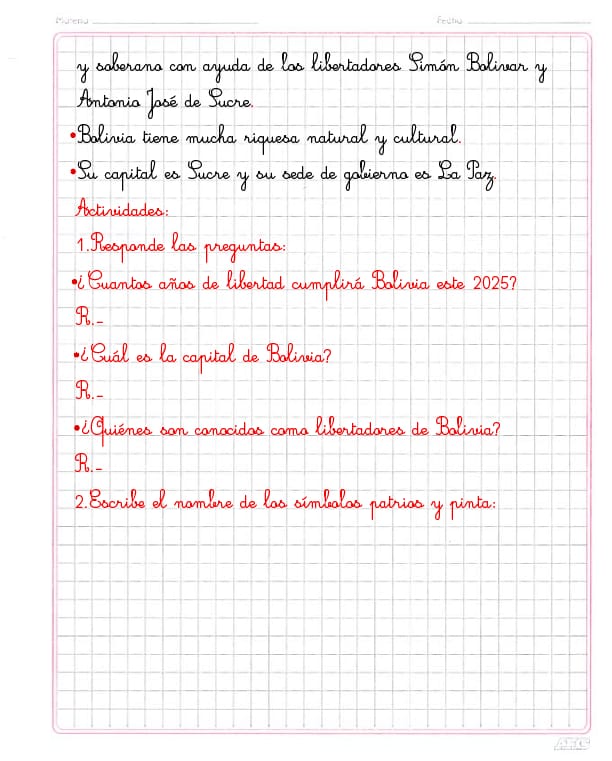 Materia Fecha
y soberano con ayuda de los libertadores Simón Bolivar y
Antonio José de Sucre.
•Bolivia tiene mucha riquesa natural y cultural.
•Su capital es Sucre y su sede de gobierno es La Paz.
Actividades:
1.Responde las preguntas:
•¿Cuantos años de libertad cumplirá Bolivia este 2025?
R.-
•¿Cuál es la capital de Bolivia?
R.-
•¿Quiénes son conocidos como libertadores de Bolivia?
R.-
2.Escribe el nombre de los símbolos patrios y pinta: